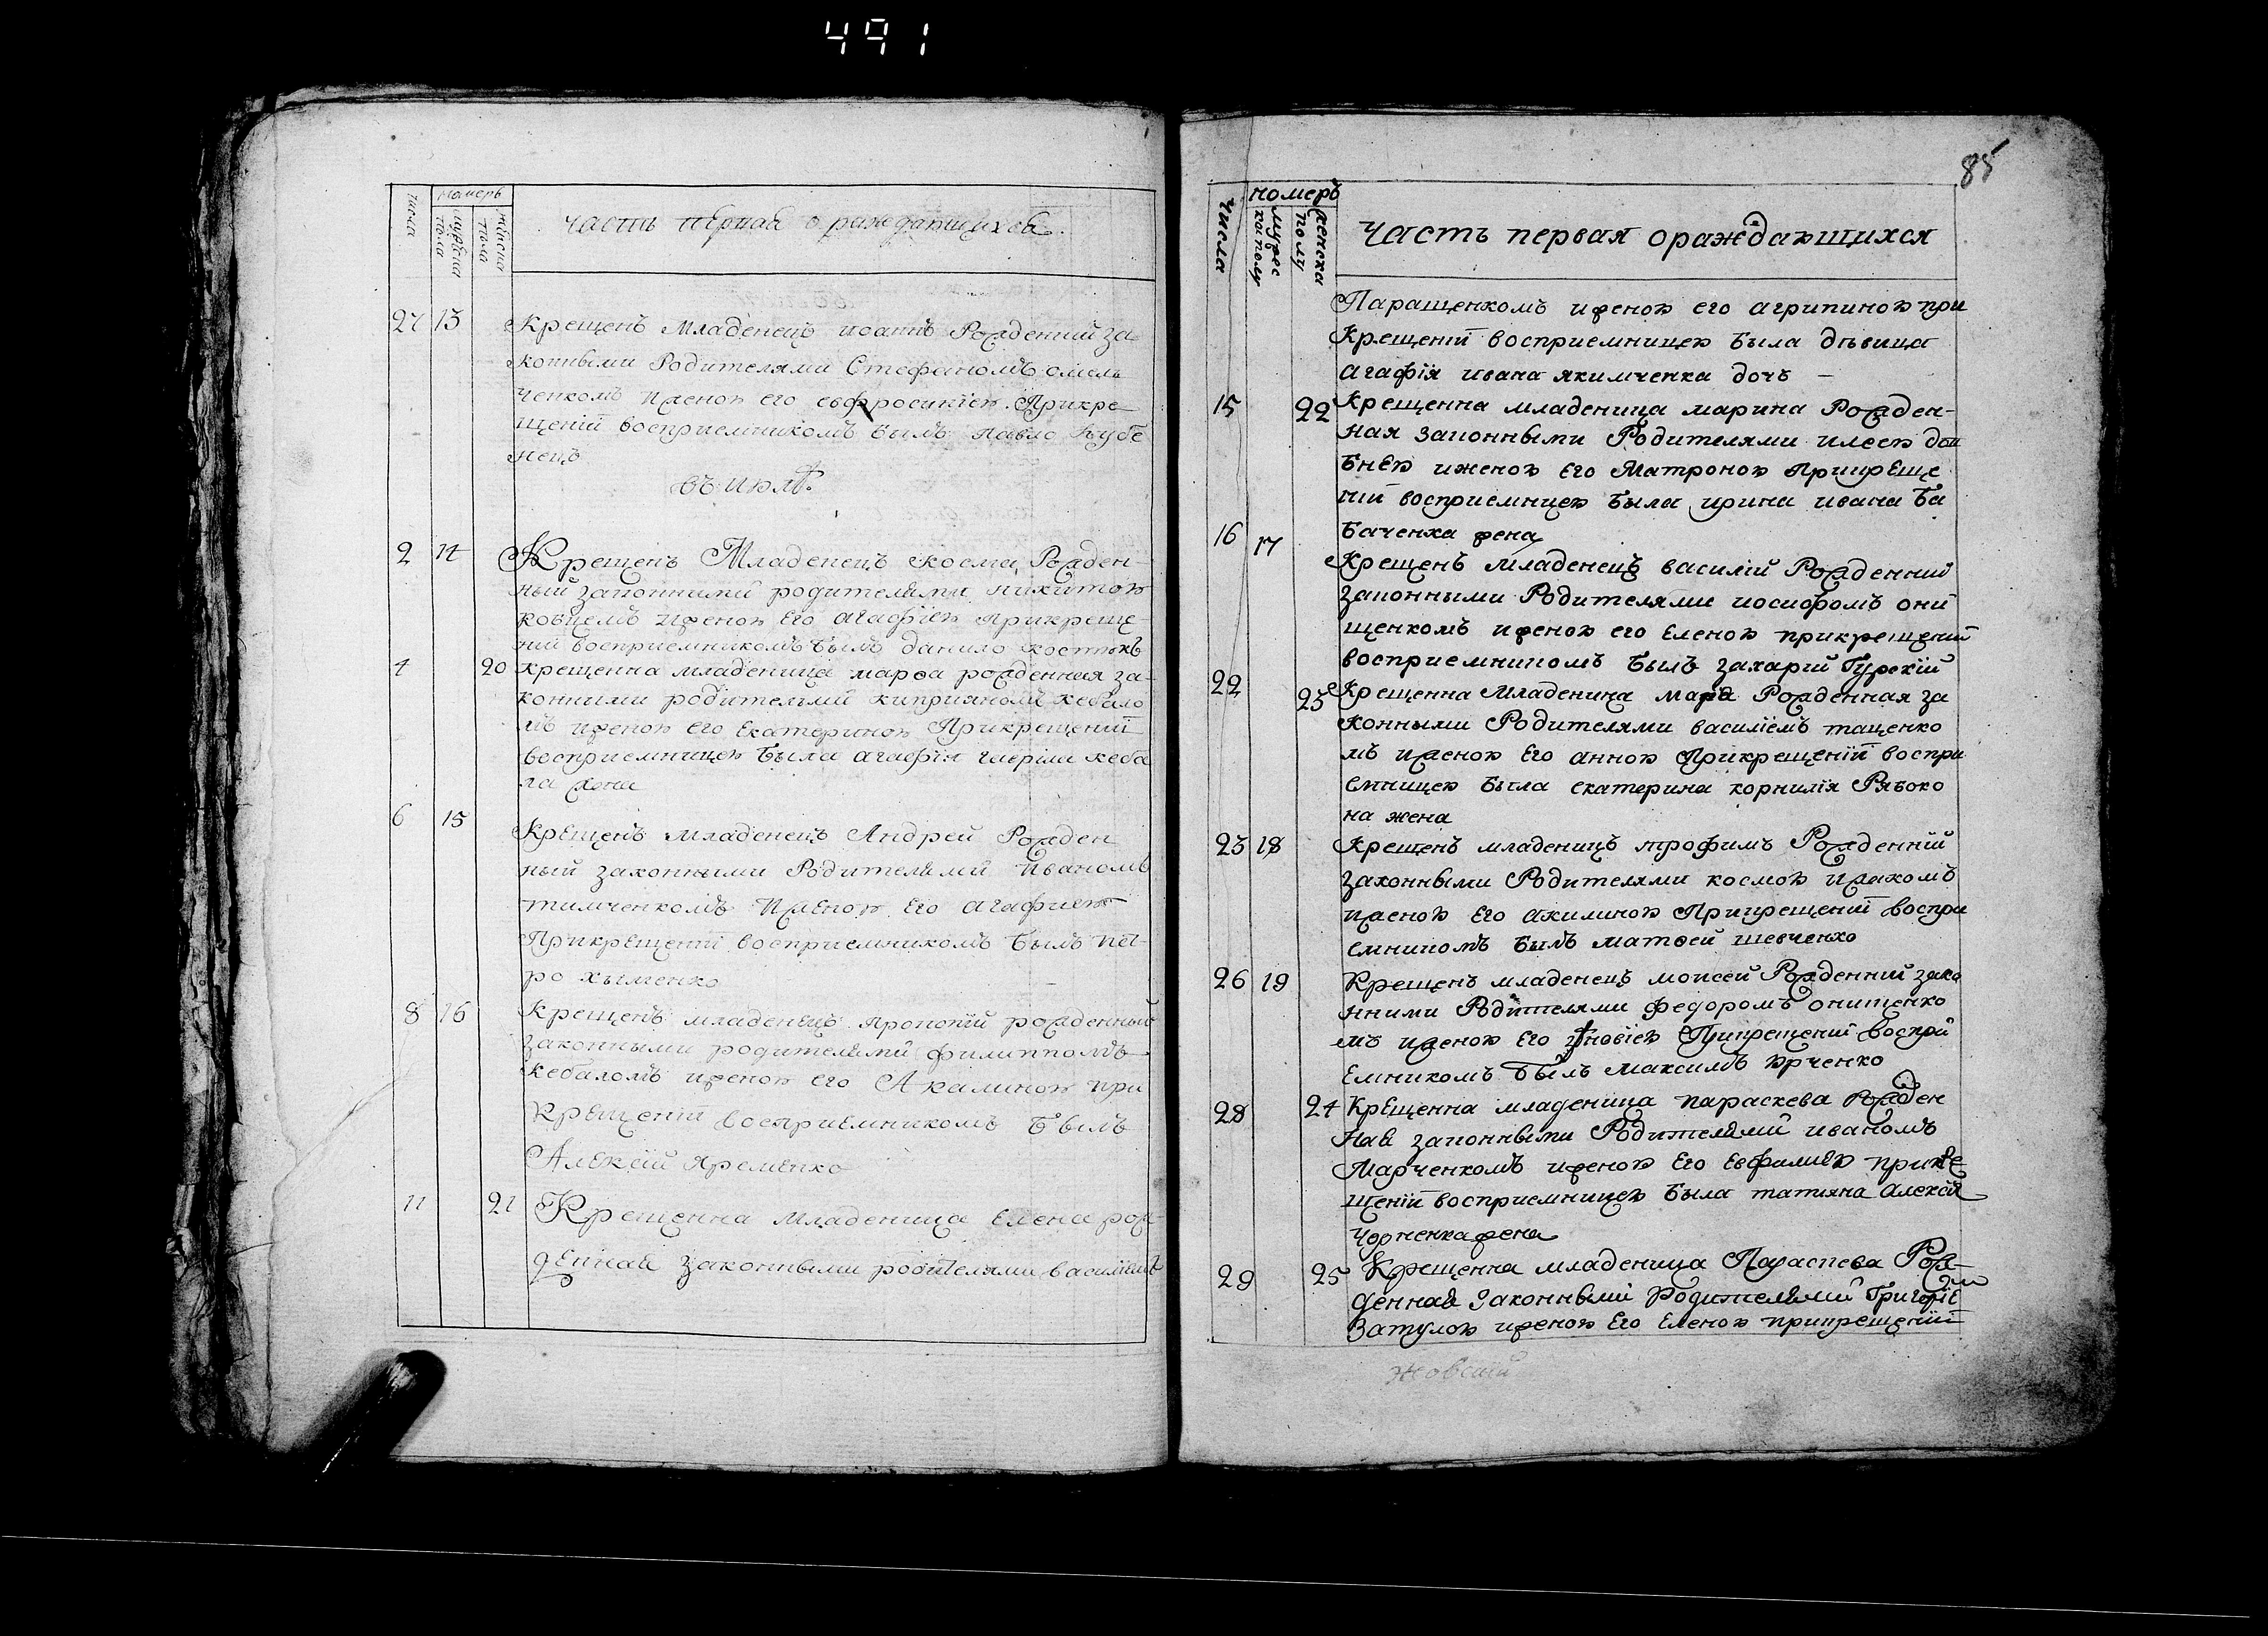 491
числа
номеръ
мужеска пола
женска пола
часть первая о раждающихся
27 13 Крещенъ Младенецъ иоаннъ Рожденний за
конными Родителями Стефаномъ омель
ченкомъ иженою его евфросиниею Прикре
щении восприемникомъ былъ павло
нецъ
въ июлѣ
2 14 Крещенъ Младенецъ косма Рожден-
ный законними родителями никитою
иженою его агафиею прикреще
нии восприемникомъ былъ данило
4 20 крещенна младеница марѳа рожденная за-
конними родителми киприяномъ кебало
мъ иженою его екатериною Прикрещении
восприемницею была агафия гаврила кеба
ла жена
6 15 Крещенъ младенецъ Андрей Рожден
ный законными Родителями иваномъ
тимченкомъ иженою его агафиею
Прикрещении восприемникомъ былъ пет-
ро хыменко
8 16 Крещенъ младенецъ прокопий рожденный
законными родителями филиппомъ
кебаломъ иженою его Акилиною при
Крещении восприемникомъ былъ
Алексий яременко
11 21 Крещенна младеница Елена рож-
денная законными родителями василиемъ
85
числа
номеръ
мужес каполу
женска полу
Часть первая ораждающихся
Паращенкомъ иженою его агрипиною при
Крещении восприемницею была дѣвица
агафія ивана якимченка дочь —
15 22 Крещенна младеница марина Рожден-
ная законными Родителями
иженою Его Матроною прикреще
нии восприемнцею была ирина ивана ба
баченка жена
16 17 Крещенъ младенецъ василій Рожденний
законными Родителями иосифомъ они
щенкомъ иженою его Еленою прикрещении
восприемникомъ былъ захарий Гурскій
22 23 Крещенна Младеница марѳа Рожденная за
конными Родителями василіемъ тащенко
мъ иженою Его анною Прикрещении воспри
емницею была екатерина корнилія Рябоко
на жена
23 18 Крещенъ младеницъ трофимъ Рожденний
законными Родителями космою ицакомъ
иженою Его акилиною Прикрещении воспри
емникомъ былъ матѳей шевченко
26 19 Крещенъ младенецъ моисей Рожденний зако
нними Родителями федоромъ онищенко
мъ иженою Его Прикрещении воспри
Емникомъ былъ Максимъ юрченко
28 24 Крещенна младеница параскева Рожден
Ная законными Родителями иваномъ
Марченкомъ иженою Его Евфимиею прикре
щении восприемницею была татияна алексия
Чорненка жена
29 25 Крещенна младеница Параскева Рож-
денная Законными Родителями Григорие
Затулою иженою Его Еленою прикрещении
жовский